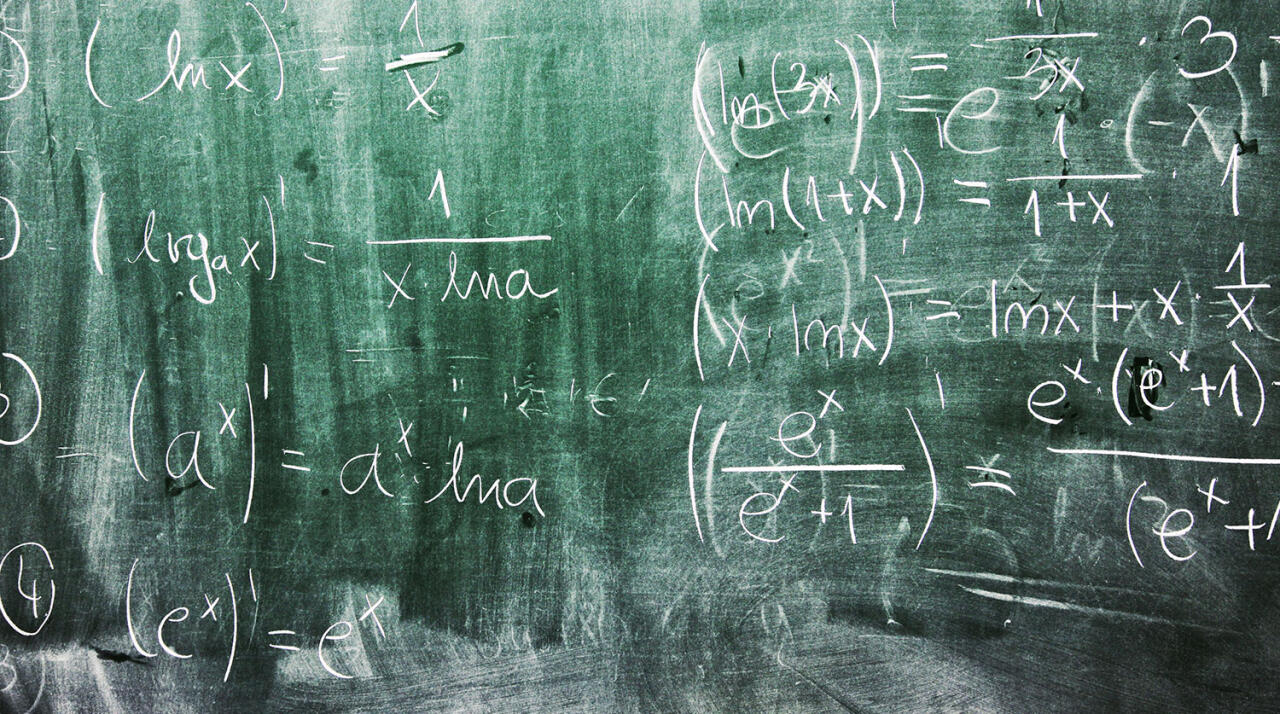 (ln x)' = 1/x
(log_a x)' = 1/(x · ln a)
(a^x)' = a^x · ln a
④ (e^x)' = e^x
(ln(3x))' = 1/3x · 3
(ln(1+x))' = 1/(1+x) · 1
(x · ln x)' = ln x + x · 1/x
(e^x/(e^x+1))' = e^x · (e^x+1)
(e^x+1